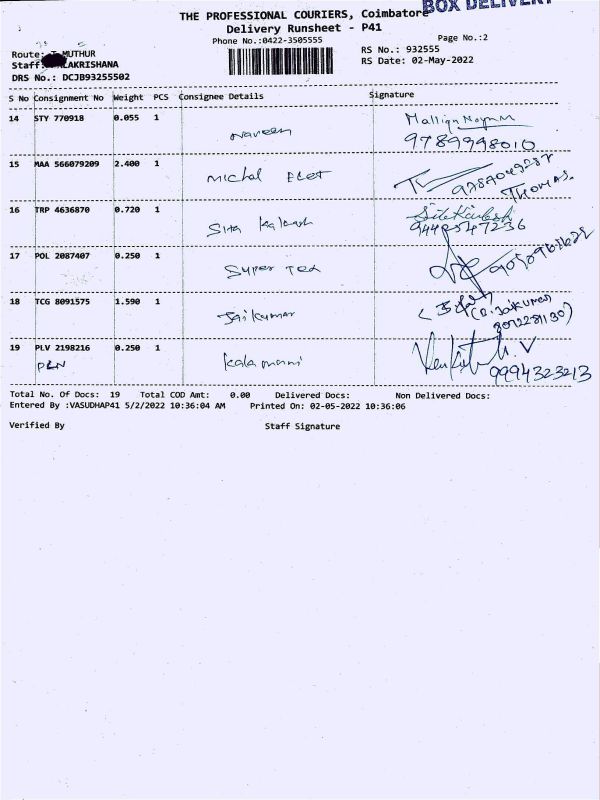 BOX DELIVERY
THE PROFESSIONAL COURIERS, Coimbatore
Delivery Runsheet - P41
Phone No.:0422-3505555
Page No.:2
Route: MUTHUR
RS No.: 932555
Staff: LAKRISHANA
RS Date: 02-May-2022
DRS No.: DCJB93255502
S No Consignment No Weight PCS Consignee Details Signature
14 STY 770918 0.055 1 naveen
9789998010
15 MAA 566079209 2.400 1 Michal
THOMAS.
16 TRP 4636870 0.720 1 Sita Kalash
9442547236
17 POL 2087407 0.250 1 Super Tex
18 TCG 8091575 1.590 1 Jaikumar
19 PLV 2198216 0.250 1 Kalamani
PLN
9994323213
Total No. Of Docs: 19 Total COD Amt: 0.00 Delivered Docs: Non Delivered Docs:
Entered By :VASUDHAP41 5/2/2022 10:36:04 AM Printed On: 02-05-2022 10:36:06
Verified By Staff Signature